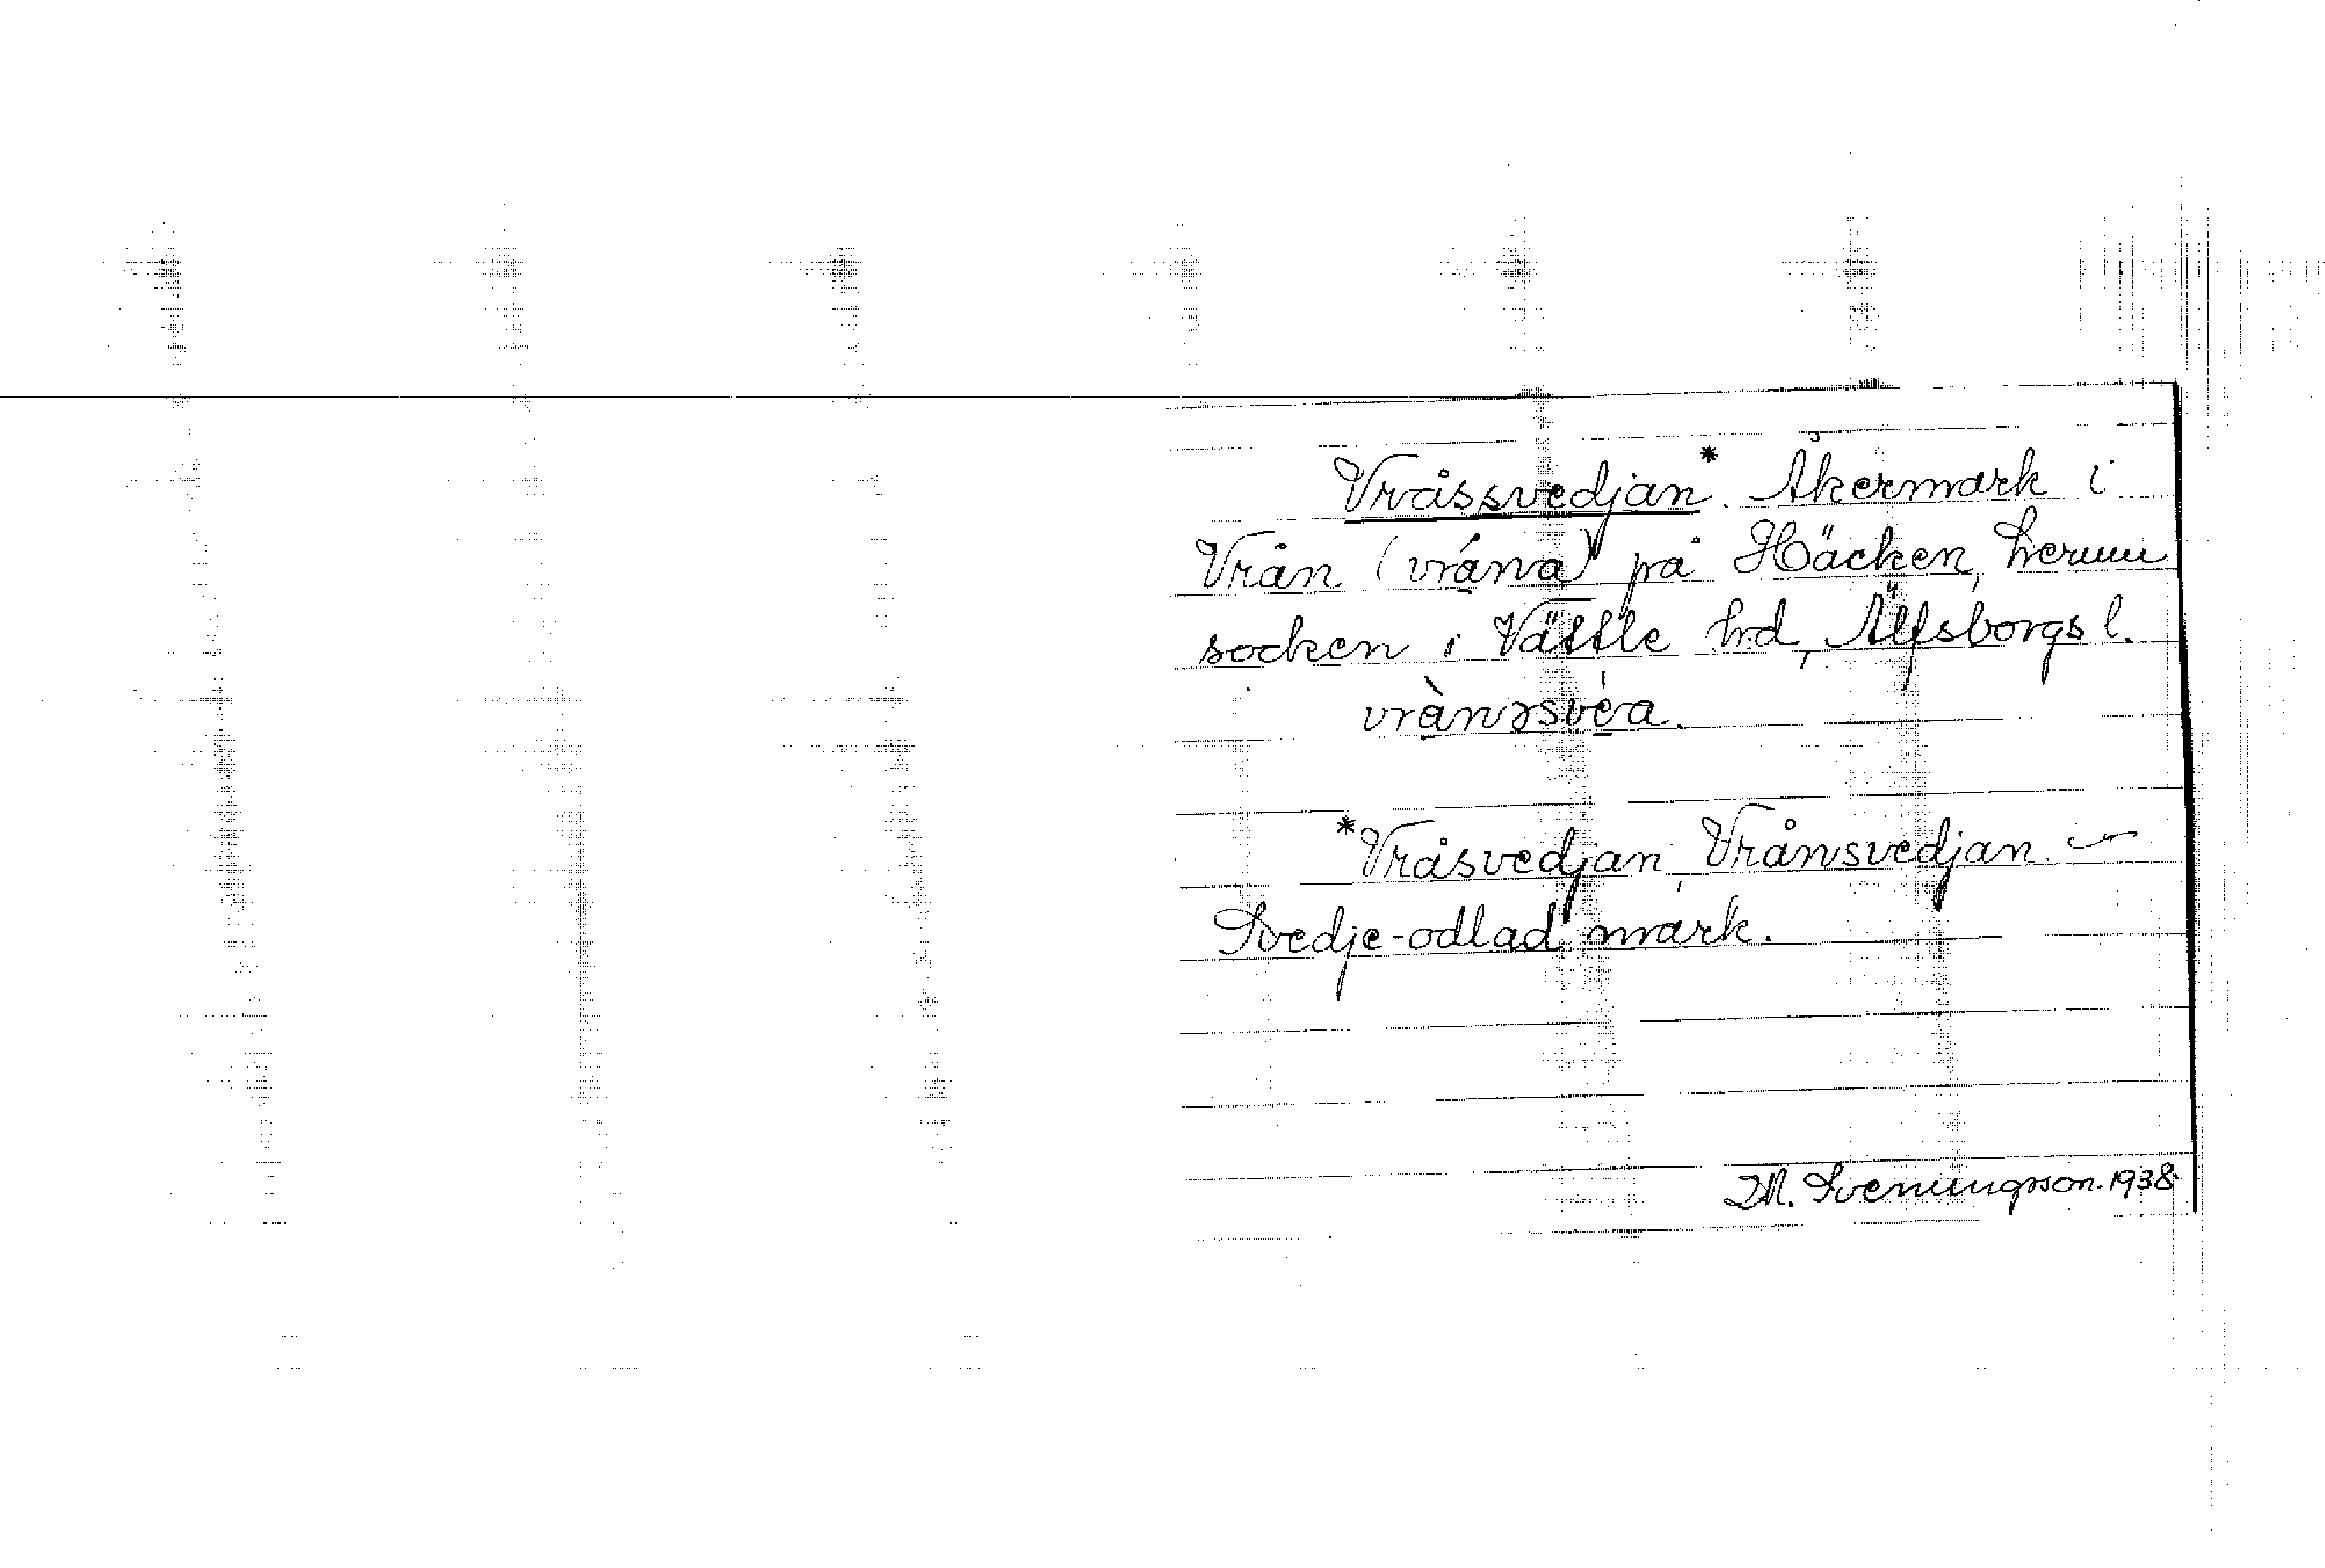 Vråssvedjan*. Åkermark i
Vrån (vrána) på Häcken, Lerum
socken i Vättle hd, Älfsborgs l.
vrànɘsvéa.
*Vråsvedjan, Vrånsvedjan. —
Svedje-odlad mark.
I.M. Sveningsson. 1938